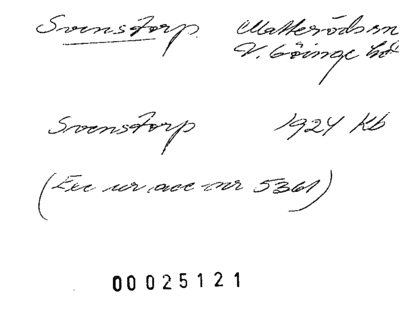 Svenstorp Matteröds sn
V. Göinge hd
Svenstorp 1924 Kb
(Exc ur acc nr 5361)
00025121